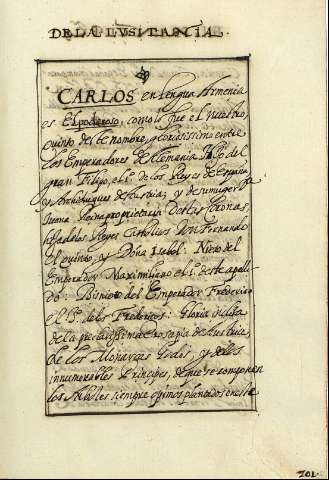 DE LA LUSITANIA.
CARLOS en lengua Armenia
es El poderoso, como lo fue el nuestro,
quinto deste nombre, gloriosissimo entre
los Emperadores de Alemania. Hijo del
gran Filipo, el 1.º de los Reyes de España
y Archiduques de Austria; y de su muger
Juana Reina proprietaria destas Coronas,
hija de los Reyes Catolicos Don Fernando
el quinto, y Doña Isabel: Nieto del
Emperador Maximiliano el 1.º deste apelli-
do: Bisnieto del Emperador Frederico
el 3.º de los Fredericos: Gloria
de la preclarissima Prosapia de Austria,
de los Monarcas Godos, y de los
innumerables Principes, de que se componen
los Arboles siempre opimos plantados en
201.